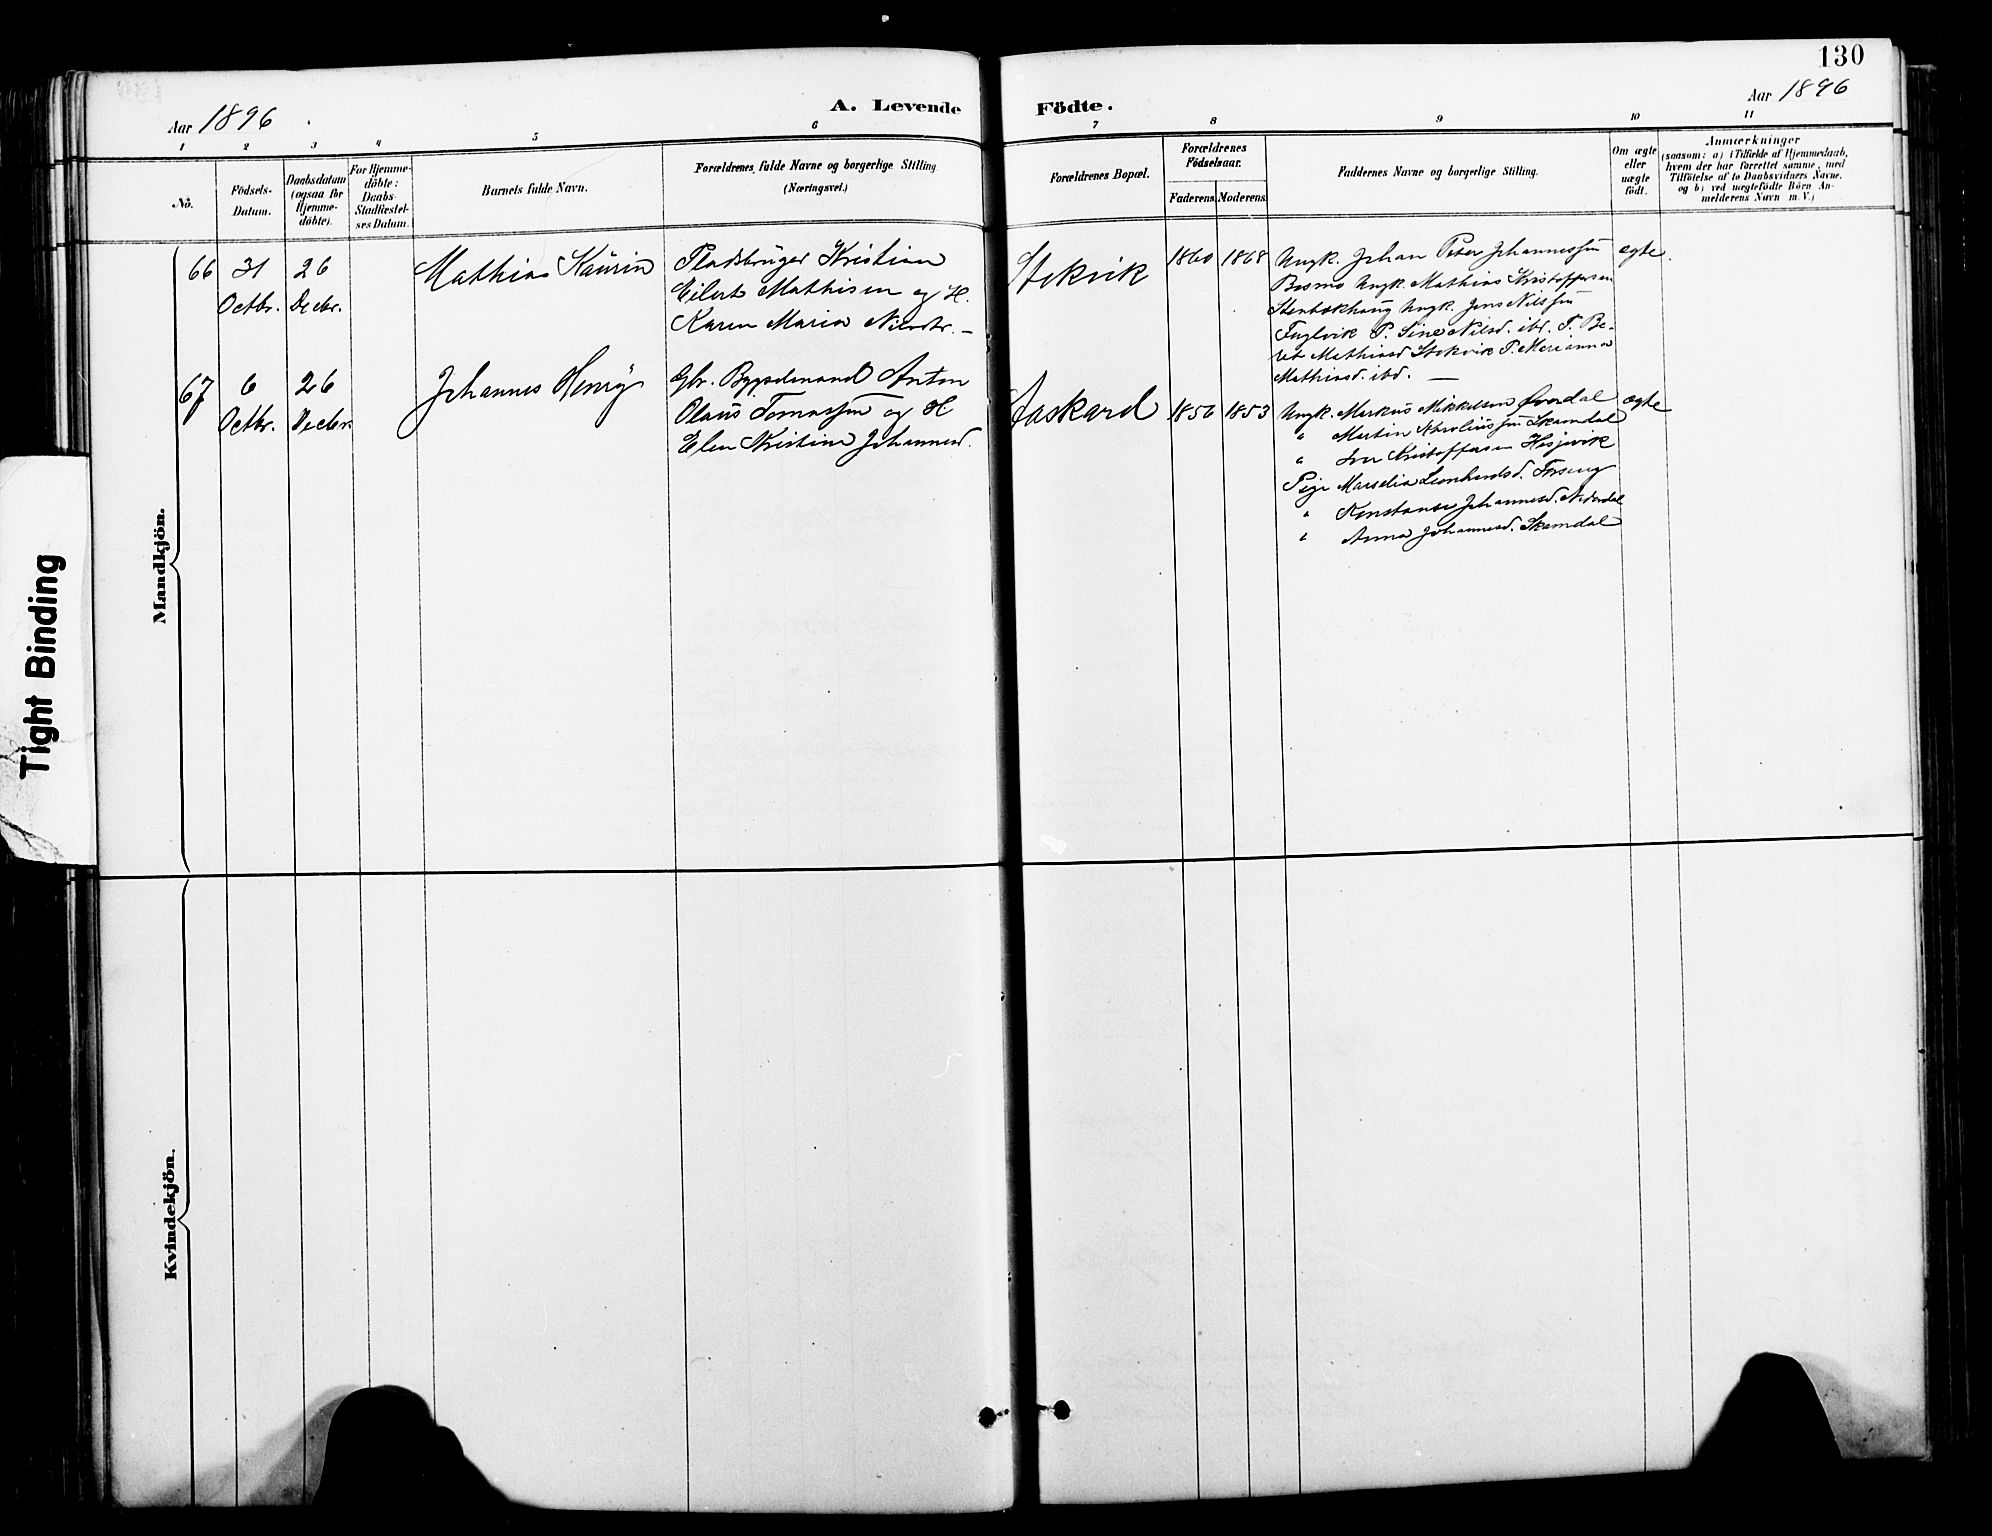 130
Aar 1896
A. Levende
Födte.
Aar 1896
1 2 3 4 5 6 7 8 9 10 11
No.
Födsels-
Datum.
Daabsdatum
(ogsaa for
Hjemme-
döbte).
For Hjemme-
döbte:
Daabs-
Stadfæstel-
ses Datum.
Barnets fulde Navn.
Forældrenes fulde Navne og borgerlige Stilling
(Næringsvei.)
Forældrenes Bopæl.
Forældrenes
Födselsaar.
Faderens. Moderens.
Faddernes Navne og borgerlige Stilling.
Om ægte
eller
uægte
födt.
Anmærkninger
(saasom: a) i Tilfælde af Hjemmedaab,
hvem der har forrettet samme, med
Tilföielse af to Daabsvidners Navne,
og b) ved uægtefödte Börn An-
melderens Navn m. V.)
Mandkjön.
66
31
Octbr.
26
Decbr.
Mathias Kaurin
Pladsbruger Kristian
Eilert Mathisen og H.
Karen Maria Nilsdtr. —
Stokvik
1860 1868
Ungk. Johan Peter Johannessen
Bosmo Ungk. Mathias Kristoffersen
Stenbækhaug Ungk. Jens Nilssen
Fuglvik P. Sine Nilsd. ibd. P. Be-
ret Mathiasd Stokvik P. Marianna
Mathiasd. ibd. —
ægte.
67
6
Octbr.
26
Decbr.
Johannes Henry
Gbr. Bygselmand Anton
Olaus Tomassen og H
Elen Kristine Johannesd.
Aaskard
1856 1853
Ungk. Markus Mikkelsen Øverdal
" Martin Karoliussen Skamdal
" Iver Kristoffersen Hesjevik
Pige Marselia Leonhardsd. Forseng
" Konstanse Johannesd. Nederdal
" Anna Johannesd. Skamdal
ægte
Kvindekjön.
Tight Binding